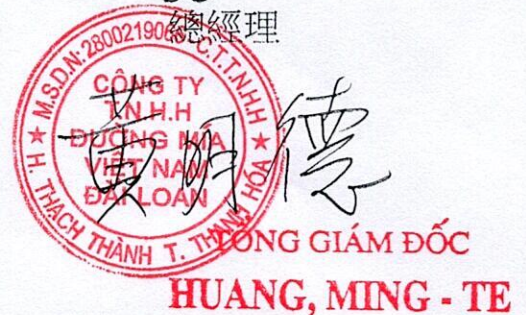 總經理
M.S.D.N: 28002190 C.T.T.N.H.H
CÔNG TY
T.N.H.H
ĐƯỜNG MÍA
VIỆT NAM
ĐÀI LOAN
H. THẠCH THÀNH T. THANH HÓA
黃明德
TỔNG GIÁM ĐỐC
HUANG, MING - TE